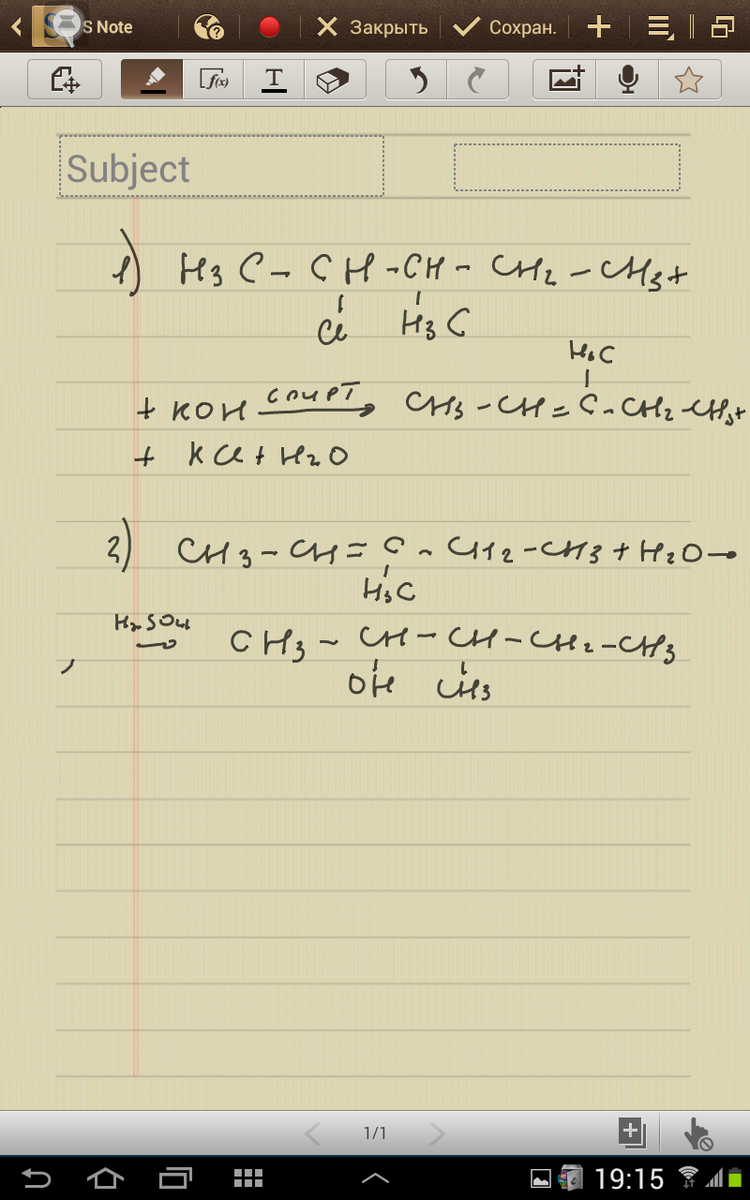 S Note
Закрыть
Сохран.
f(x)
T
Subject
1) H3C - CH - CH - CH2 - CH3 +
Cl H3C
H3C
+ KOH спирт → CH3 - CH = C - CH2 - CH3 +
+ KCl + H2O
2) CH3 - CH = C - CH2 - CH3 + H2O →
H3C
H2SO4 → CH3 - CH - CH - CH2 - CH3
OH CH3
1/1
19:15